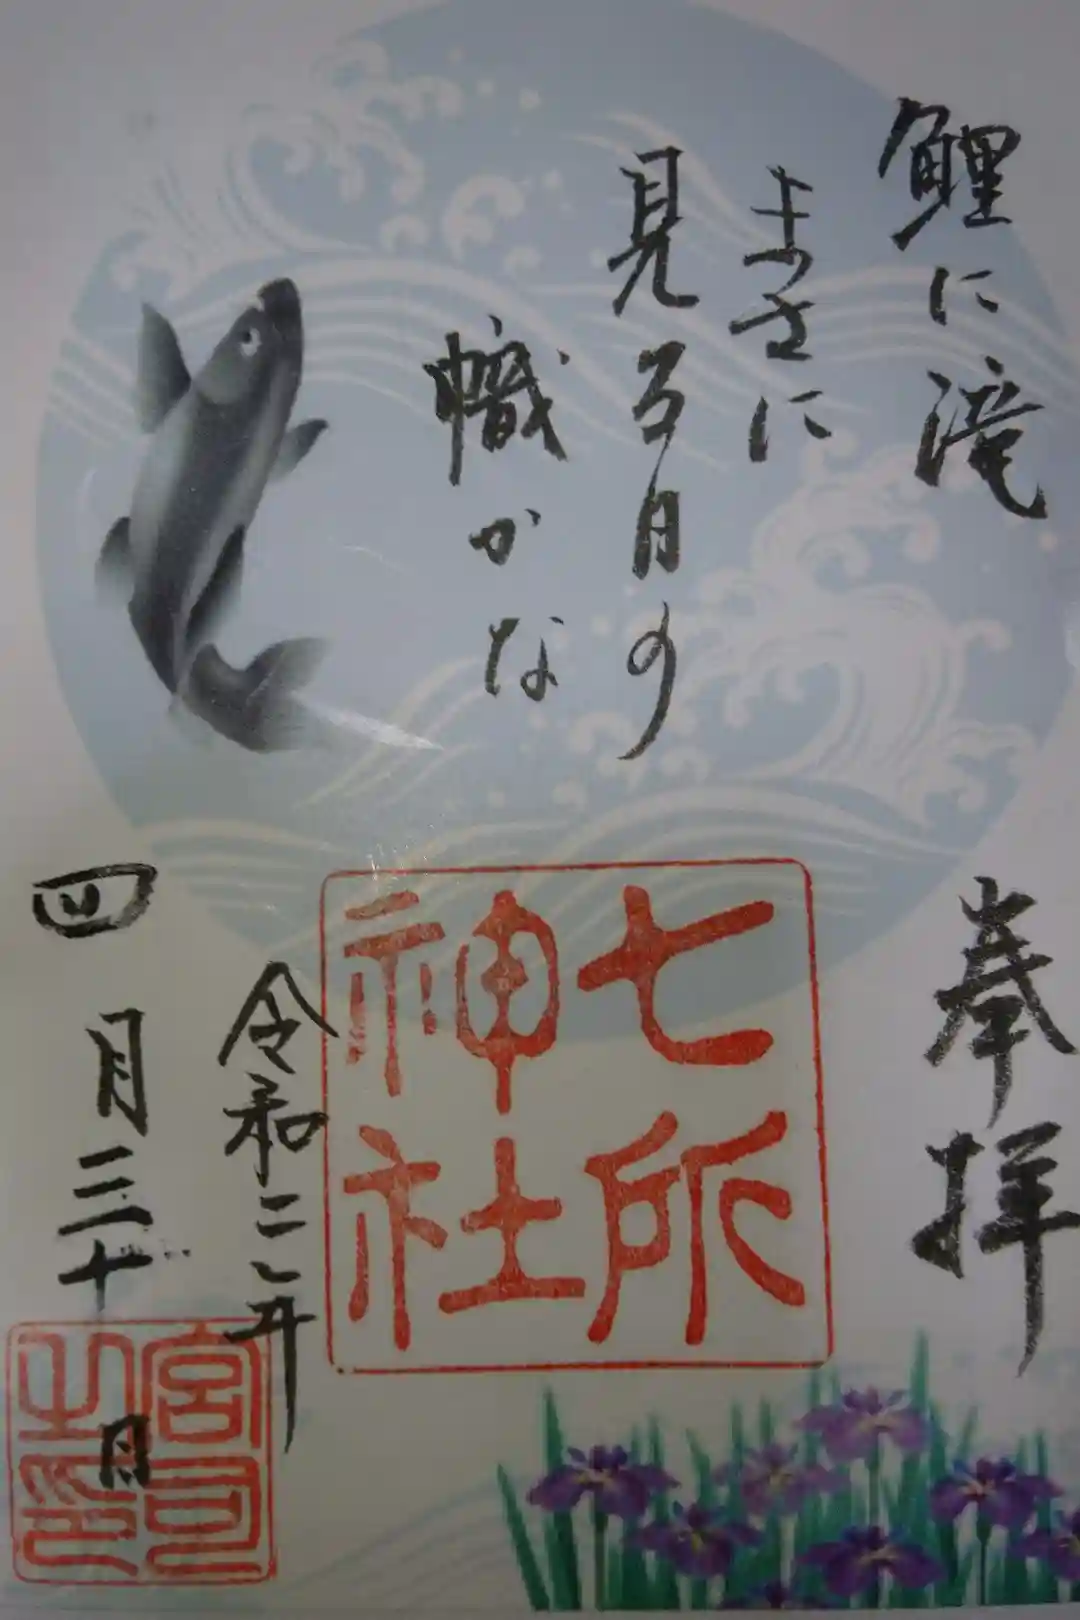 鯉に滝
まさに
見る日の
幟かな
奉拝
七所
神社
令和二年
四月三十日
宮司
之印